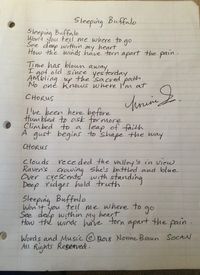 Sleeping Buffalo
Sleeping Buffalo
Won't you tell me where to go
See deep within my heart
How the winds have torn apart the pain
Time has blown away
I got old since yesterday
Ambling up the sacred path
No one knows where I'm at
CHORUS
I've been here before
Humbled to ask for more
Climbed to a leap of faith
A gust begins to shape the way
CHORUS
Clouds receded the valley's in view
Raven's crowing she's battled and blue
Over crescents with standing
Deep ridges hold truth
Sleeping Buffalo
Won't you tell me where to go
See deep within my heart
How the winds have torn apart the pain
Words and Music © 2013 Norine Braun SOCAN
All Rights Reserved.